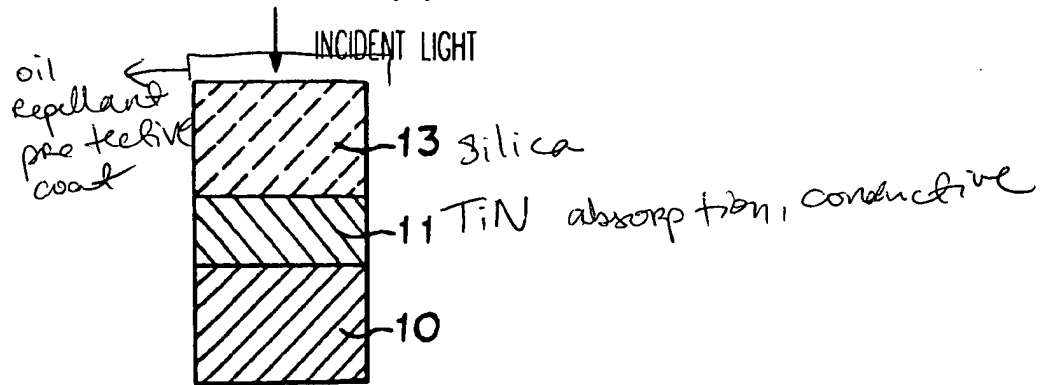 INCIDENT LIGHT
oil
repellant
protective
coat
13 silica
11 TiN absorption, conductive
10